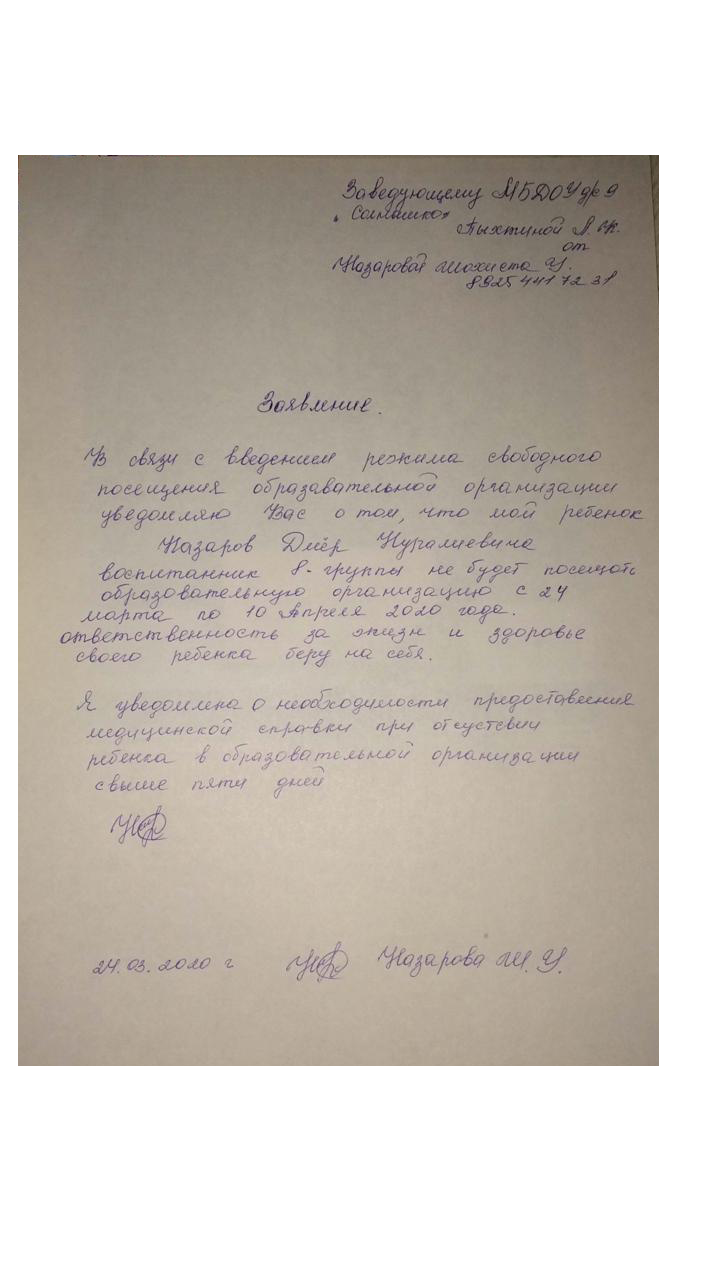 Заведующему МБДОУ д/с 9
"Солнышко"
Пыхтиной Л. Ж.
от
Назаровой Шохиста У.
8925 441 72 31
Заявление.
В связи с введением режима свободного
посещения образавательной организации
уведомляю Вас о том, что мой ребенок
Назаров Диёр Нуралиевича
воспитанник 8- группы не будет посещать
образовательную организацию с 24
марта по 10 Апреля 2020 года.
ответственность за жизн и здоровье
своего ребенка беру на себя.
Я уведомлена о необходимости предоставления
медицинской справки при отсуствии
ребенка в образовательной организации
свыше пяти дней
24.03.2020 г Назарова Ш. У.